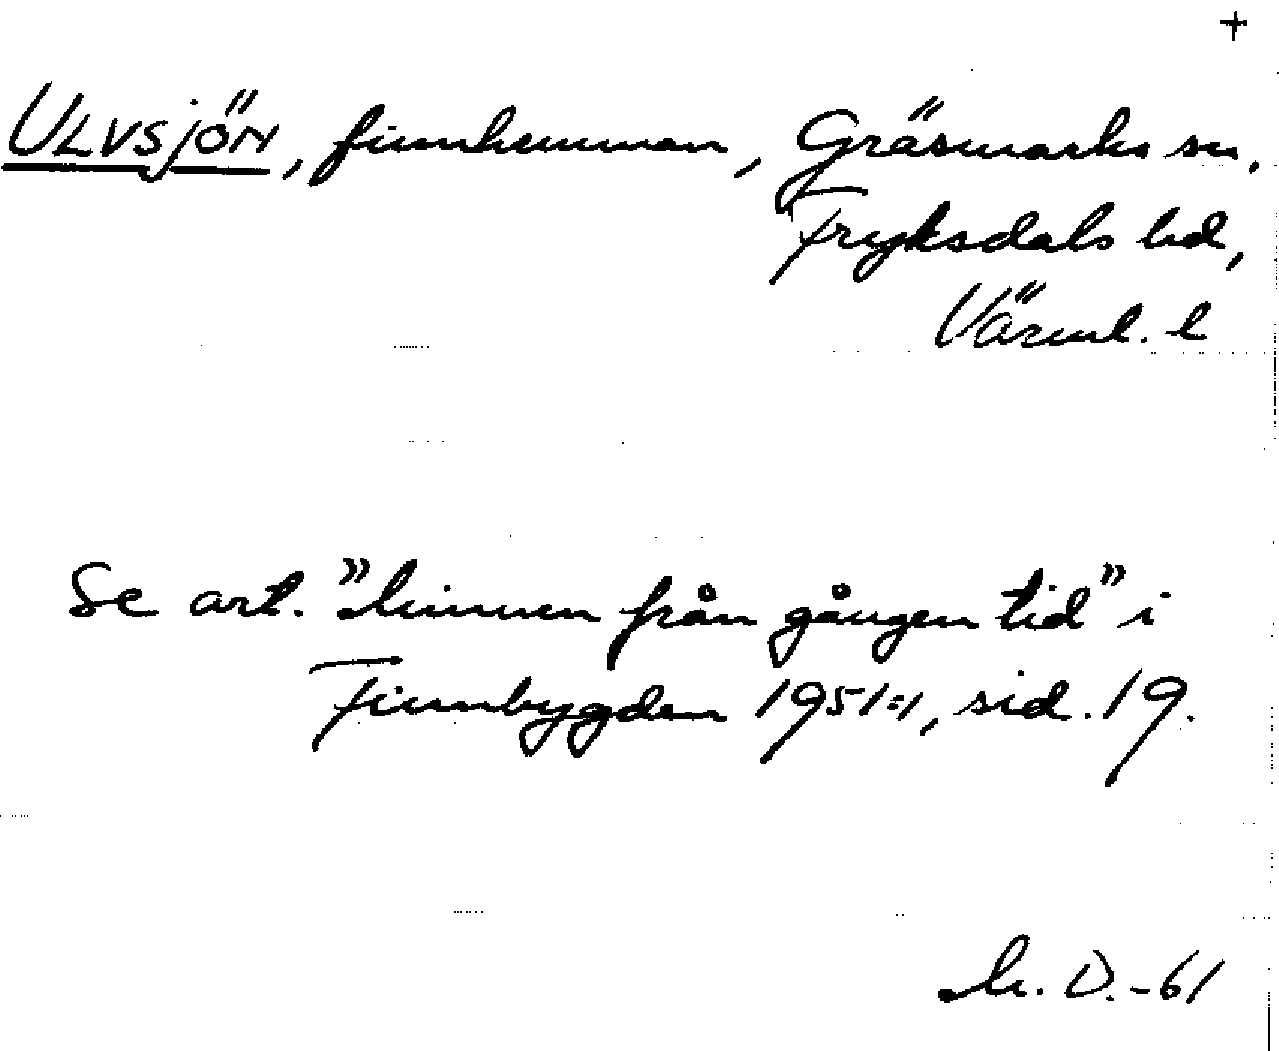 +
ULVSJÖN, finnhemman, Gräsmarks sn.
Fryksdals hd,
Värml. l
Se art. "Minnen från gången tid" i
Finnbygden 1951:1, sid. 19.
M. D. -61